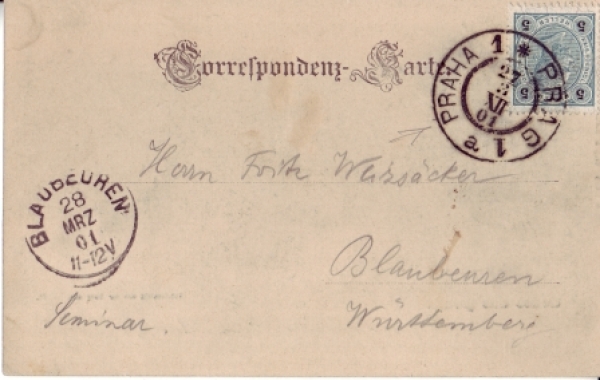 Correspondenz-Karte
PRAHA 1 * PRAG 1 a
27
3
XII
01
5 5
5 5
Herrn Fritz Weizsäcker
BLAUBEUREN
28
MRZ
01
11-12V
Blaubeuren
Seminar.
Württemberg